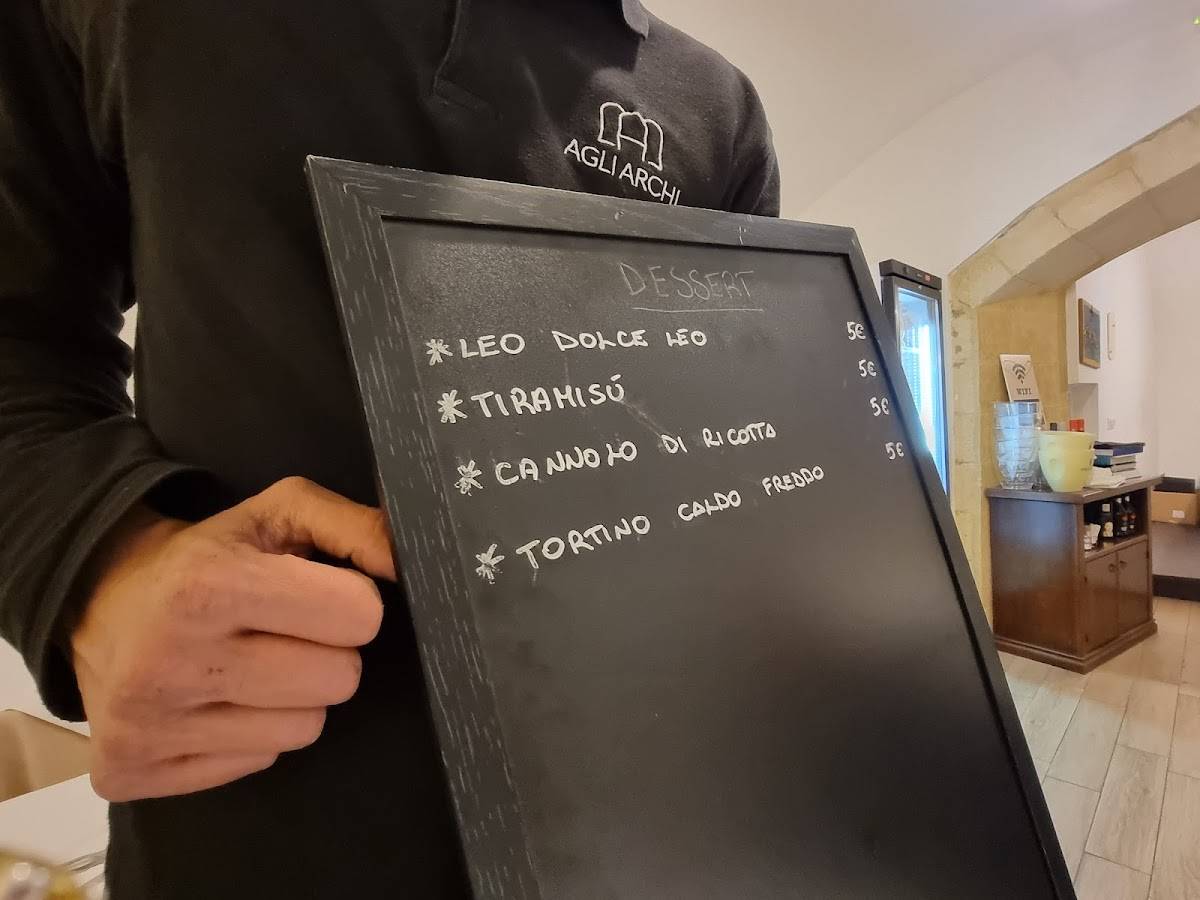 AGLI ARCHI
DESSERT
* LEO DOLCE LEO 5€
* TIRAMISÚ 5€
* CANNOLO DI RICOTTA 5€
* TORTINO CALDO FREDDO 5€
WIFI